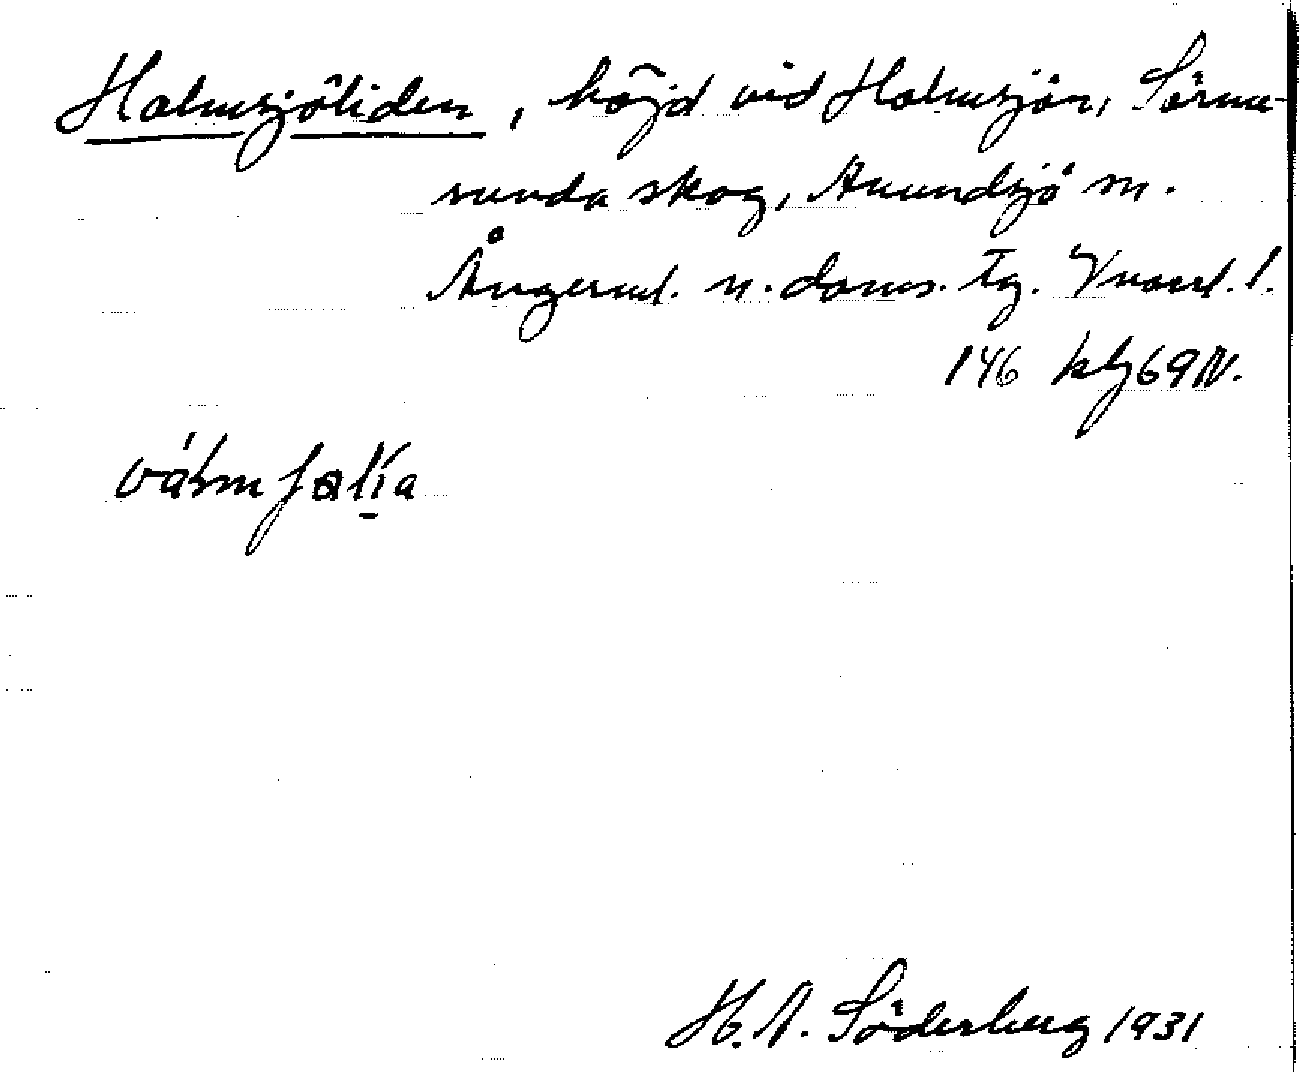 Holmsjöliden, höjd vid Holmsjön, Sörnu-
runda skog, Anundsjö sn.
Ångerml. n. doms. tg. Vnorrl. l.
146 kbj 69 N.
H. A. Söderberg 1931